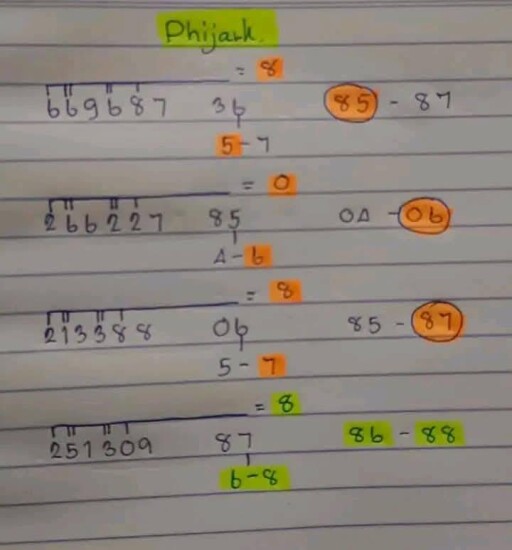 Phijark.
= 8
669687 36 85 - 87
5-7
= 0
266227 85 04 - 06
4-6
= 8
213388 06 85 - 87
5-7
= 8
251309 87 86 - 88
6-8